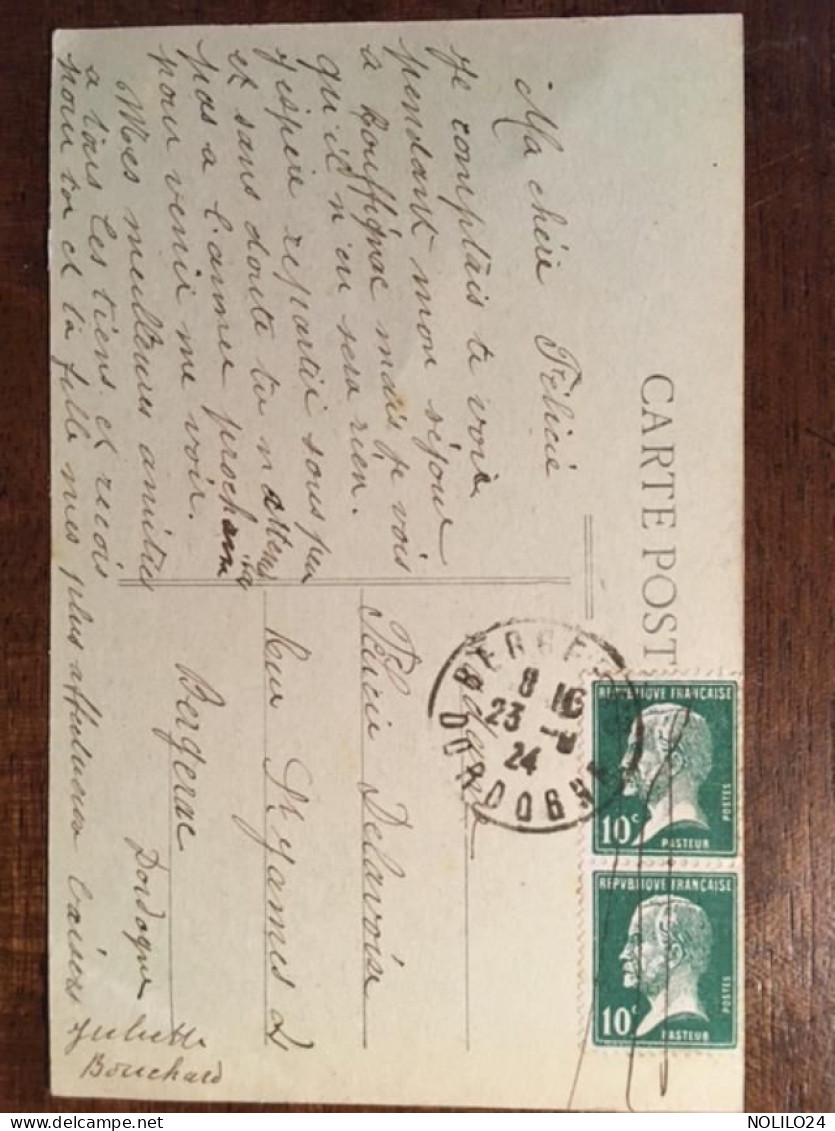 CARTE POST
Ma chérie Félicie
Je comptais te voir
pendant mon séjour
a Rouffignac mais je vois
qu'il n'en sera rien.
J'espère repartir sous peu
et sans doute tu n'attend
pas a l'année prochaine
pour venir me voir.
Mes meilleures amitiés
a tous les tiens et recois
pour toi et ta fille mes plus affectueux baisers
Juliette
Bouchard
Félicie Delavoie
Rue St James 2
Bergerac
Dordogne
BERGERAC
8 16
23
24
DORDOGNE
REPVBLIQUE FRANÇAISE
10c
POSTES
PASTEUR
REPVBLIQUE FRANÇAISE
10c
POSTES
PASTEUR
NOLILO24